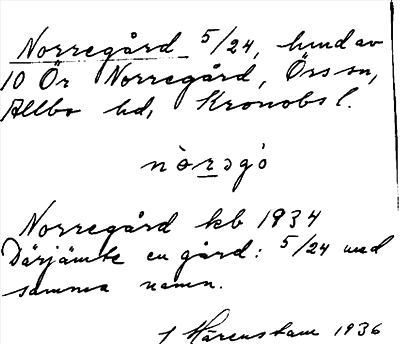 Norregård 5/24, hmd av
10 Ör Norregård, Örs sn,
Allbo hd, Kronobs l.
nòrəgó
Norregård kb 1934
Därjämte en gård: 5/24 med
samma namn.
Härenstam 1936